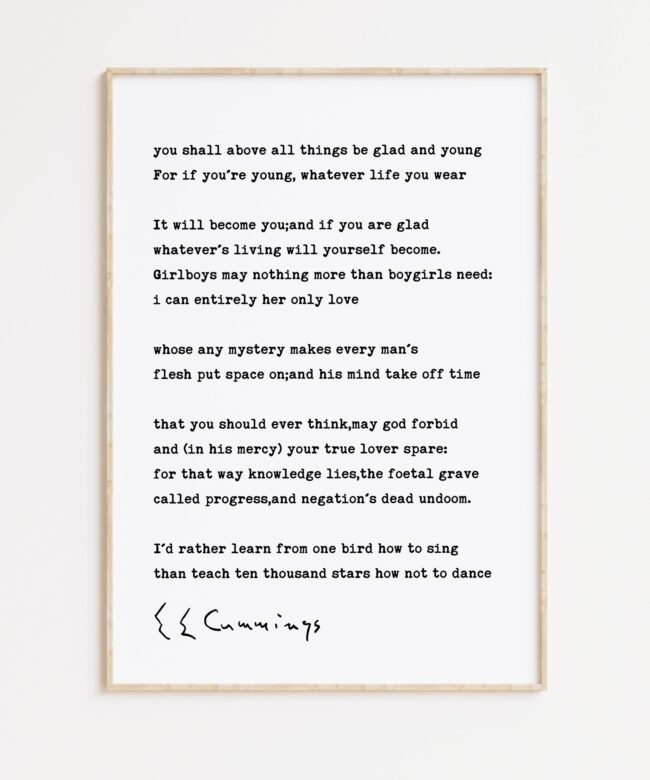 you shall above all things be glad and young
For if you're young, whatever life you wear
It will become you;and if you are glad
whatever's living will yourself become.
Girlboys may nothing more than boygirls need:
i can entirely her only love
whose any mystery makes every man's
flesh put space on;and his mind take off time
that you should ever think,may god forbid
and (in his mercy) your true lover spare:
for that way knowledge lies,the foetal grave
called progress,and negation's dead undoom.
I'd rather learn from one bird how to sing
than teach ten thousand stars how not to dance
E E Cummings